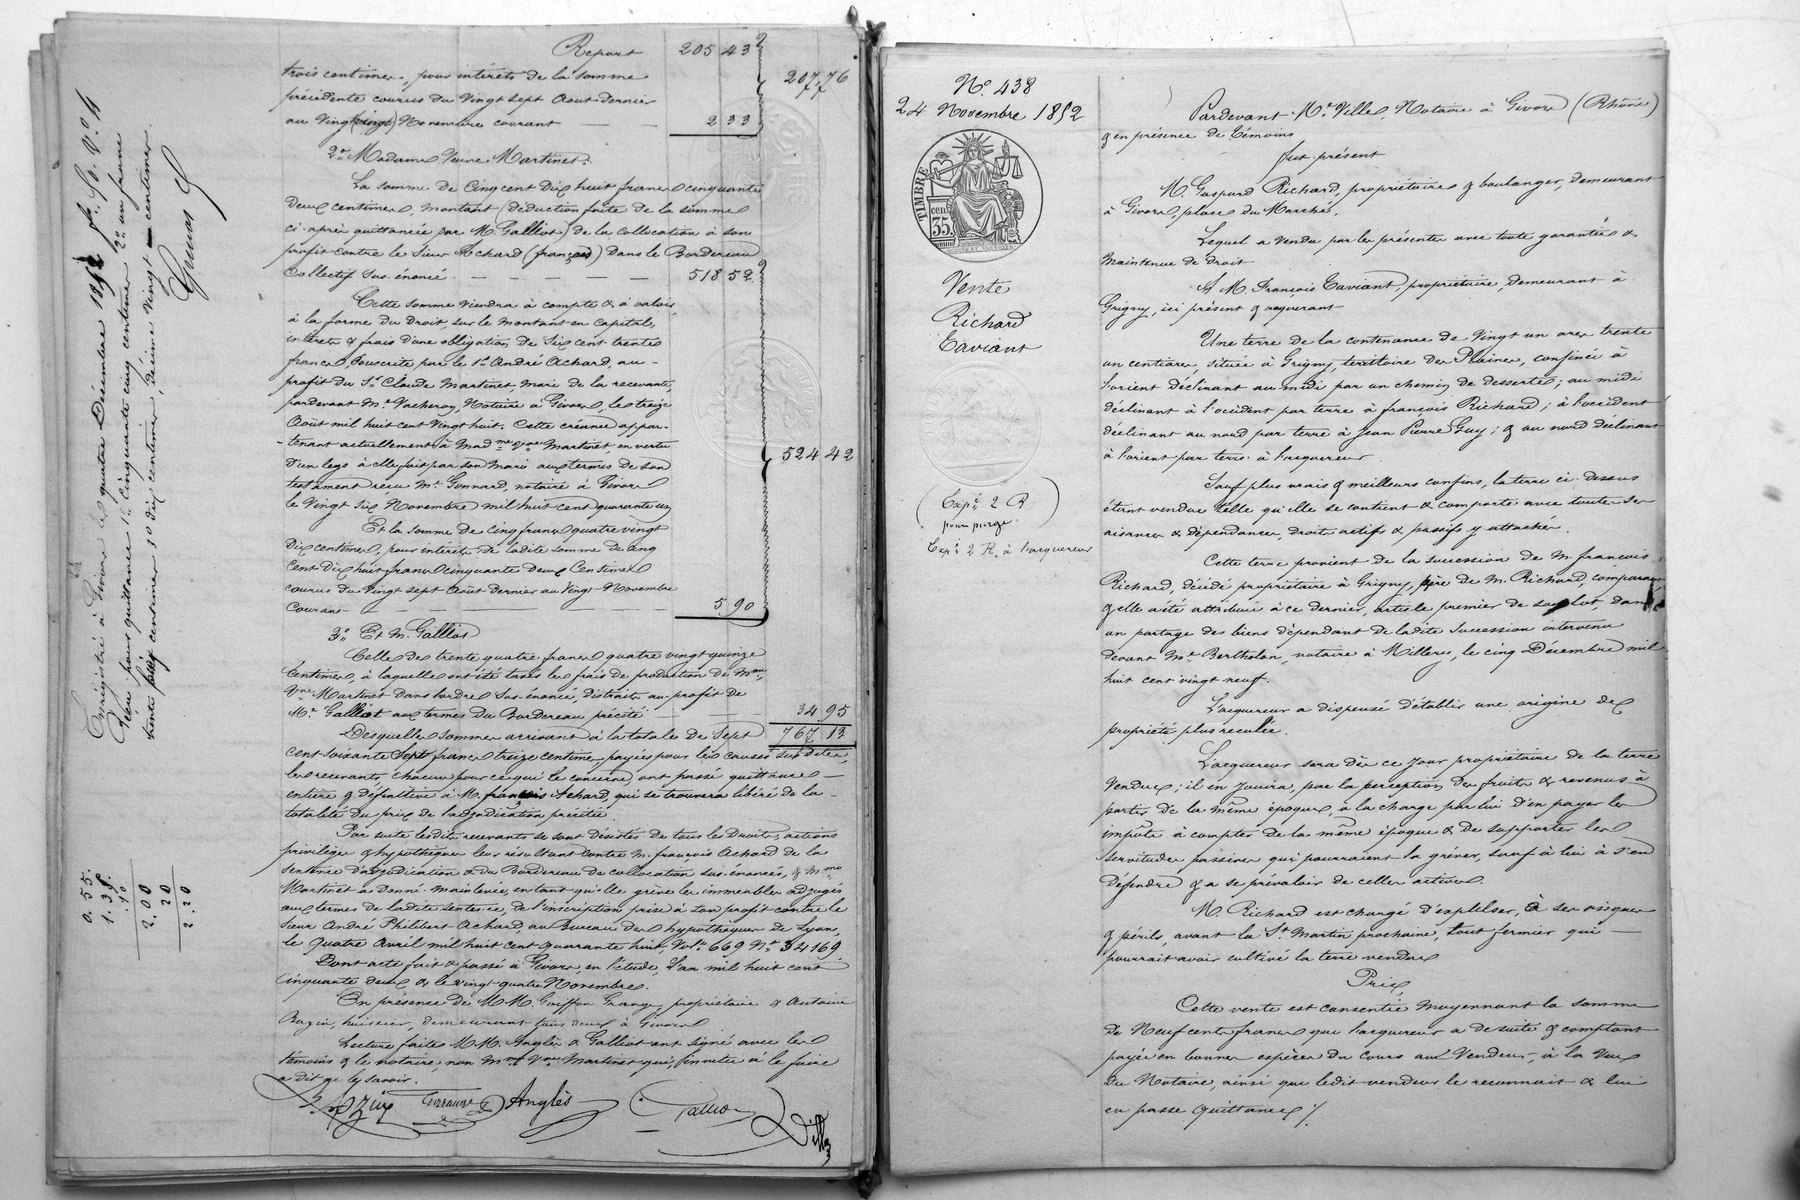 Report 205 43
trois centimes, pour intérêts de la somme 207,76
précédente courus du Vingt sept Aout dernier
au Vingt Novembre courant 2 33
2° Madame Veuve Martinet.
La somme de Cinq cent Dix huit francs cinquante
Deux centimes, montant (déduction faite de la somme
ci-après quittancée par M. Galliot) de la collocation à son
profit contre le Sieur Achard (françois) Dans le Bordereau
Collectif sus-énoncé. 518 52
Cette somme viendra à compte & à valoir,
à la forme du Droit, sur le montant en Capital,
intérêts & frais d'une obligation de Six cent trente
francs, souscrite par le Sr. André Achard, au
profit du Sr. Claude Martinet, mari de la recevante,
pardevant Me Vacheron, Notaire à Givors, le treize
Aout mil huit cent Vingt huit. Cette créance appar-
-tenant actuellement à Madme Vve Martinet, en vertu 524 42
d'un legs à elle fait par son mari aux termes de son
testament reçu Me Gonnard, notaire à Givors
le Vingt six Novembre mil huit cent quarante un
Et la somme de cinq francs quatre vingt
Dix centimes, pour intérêts de ladite somme de cinq
Cent Dix huit francs cinquante deux Centimes
courus du Vingt sept Août dernier au Vingt Novembre
Courant 5,90
3° Et M. Galliot
Celle de trente quatre francs quatre vingt quinze
Centimes, à laquelle ont été taxés les frais de production de Mme
Vve Martinet dans l'ordre sus-énoncé, distraits au profit de
Me Galliot aux termes du Bordereau précité 34 95
Desquelles sommes arrivant à la totale de Sept 767 13
cent soixante sept francs treize centimes payées pour les causes sus dites,
les recevants, chacun pour ce qui le concerne, ont passé quittance
entière & définitive à M. françois Achard, qui se trouvera libéré de la
totalité du prix de l'adjudication précitée.
Par suite lesdits recevants se sont désistés de tous les Droits, actions
privilèges & hypothèques leur résultant contre M. françois Achard de la
Sentence d'adjudication & du Bordereau de collocation sus-énoncés, & Mme
Martinet a donné mainlevée, en tant qu'elle grève les immeubles adjugés
aux termes de ladite sentence, de l'inscription prise à son profit contre le
sieur André Philibert Achard, au Bureau des hypothèques de Lyon,
le Quatre Avril mil huit cent quarante huit, Vol. 669 N° 34169.
Dont acte fait & passé à Givors, en l'étude, L'an mil huit cent
Cinquante deux & le vingt quatre Novembre.
En présence de M.M. Goiffon Grange, propriétaire & Antoine
Bazin, huissier, demeurant tous deux à Givors
Lecture faite, M.M. Anglès & Galliot ont signé avec les
témoins & le notaire, non Mme Vve Martinet qui, (invitée à le faire
a dit ne le savoir.
Anglès Galliot Ville
Enregistré à Givors le quatre Décembre 1852
Reçu pour quittance 1° Cinquante cinq centimes 2° un franc
trente cinq centimes 3° dix centimes, décime Vingt centimes.
0.55.
1.35.
.10
2.00
20
2.20
N° 438
24 Novembre 1852
TIMBRE
35 cen.
Vente
Richard
Caviant
(Expn. 2 R
pour purge)
Expn. 2 R. à l'acquéreur
Pardevant Me Ville, Notaire à Givors (Rhône)
& en présence de témoins
fut présent
M. Gaspard Richard, propriétaire & boulanger, demeurant
à Givors, place du Marché.
Lequel a vendu par les présentes avec toute garantie &
Maintenue de droit
A M. François Caviant, propriétaire, demeurant à
Grigny, ici présent & acquérant
Une terre de la contenance de Vingt un ares trente
un centiares, située à Grigny, territoire des Plaines, confinée à
l'orient déclinant au midi par un chemin de desserte; au midi
déclinant à l'occident par terre à françois Richard; à l'occident
déclinant au nord par terre à Jean Pierre Guy; & au nord déclinant
à l'orient par terre à l'acquéreur.
Sauf plus vrais & meilleurs confins, la terre ci-dessus
étant vendue telle qu'elle se contient & comporte avec toutes ses
aisances & dépendances, droits actifs & passifs y attachés.
Cette terre provient de la succession de M. françois
Richard, décédé propriétaire à Grigny, père de M. Richard, comparant,
& elle a été attribuée à ce dernier, article premier de son lot, dans
un partage des biens dépendant de ladite succession intervenu
devant Me Bertholon, notaire à Millery, le cinq Décembre mil
huit cent vingt neuf.
L'acquéreur a dispensé d'établir une origine de
propriété plus reculée.
L'acquéreur sera dès ce jour propriétaire de la terre
Vendue; il en jouira, par la perception des fruits & revenus à
partir de la même époque, à la charge par lui d'en payer les
impôts à compter de la même époque & de supporter les
servitudes passives qui pourraient la gréver, sauf à lui à s'en
défendre & a se prévaloir de celles actives.
M. Richard est chargé d'expulser, à ses risques
& périls, avant la St. Martin prochaine, tout fermier qui
pourrait avoir cultivé la terre vendue
Prix
Cette vente est consentie moyennant la somme
De Neuf cents francs que l'acquéreur a de suite & comptant
payée en bonnes espèces du cours au Vendeur, à la Vue
du Notaire, ainsi que ledit vendeur le reconnait & lui
en passe quittance ./.